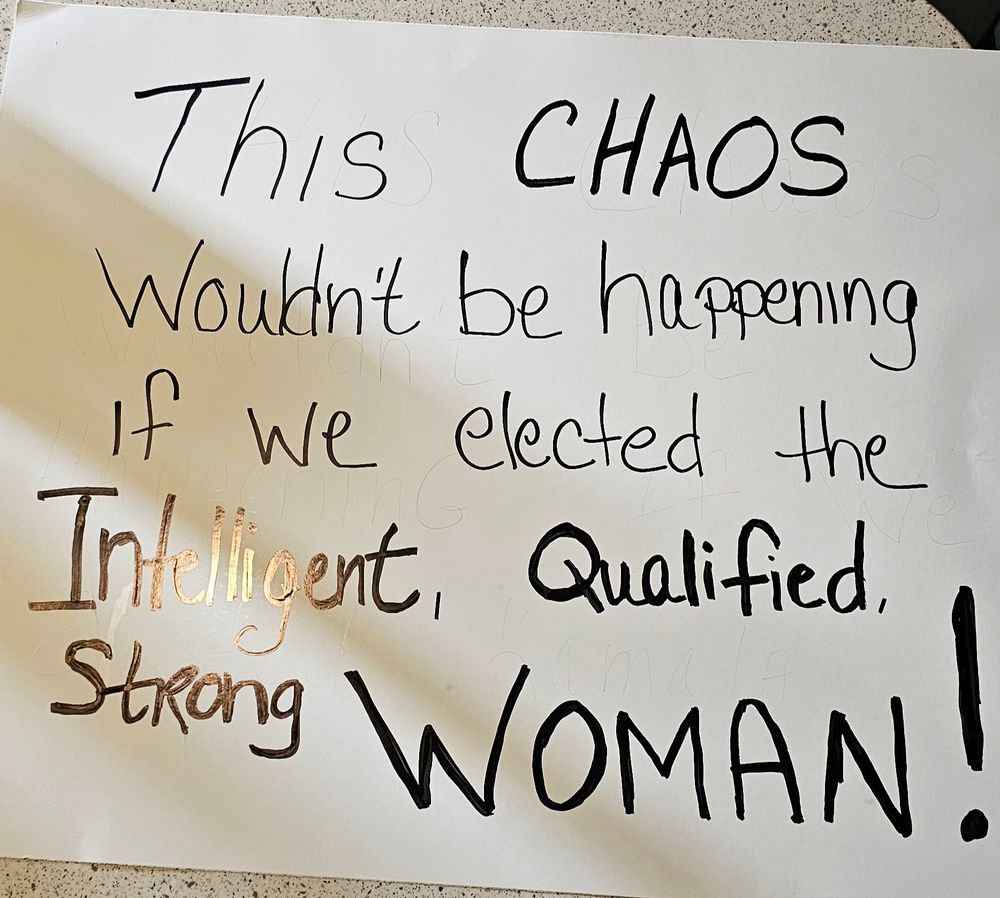 This CHAOS
Wouldn't be happening
If we elected the
Intelligent, Qualified,
Strong WOMAN!